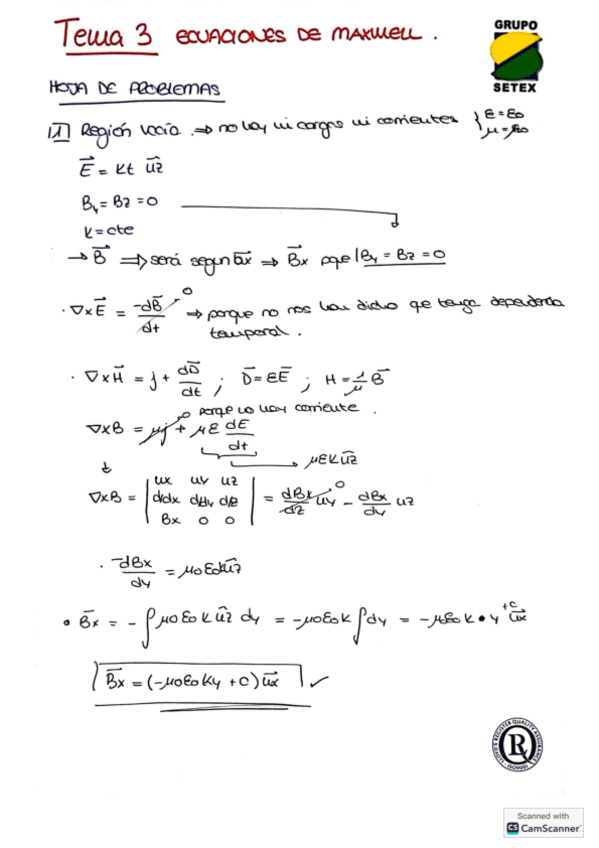 Tema 3 ECUACIONES DE MAXWELL.
GRUPO
SETEX
HOJA DE PROBLEMAS
1 Región vacía ⇒ no hay ni cargas ni corrientes { ε = ε0
μ = μ0
E⃗ = kt ûz
By = Bz = 0
k = cte
→ B⃗ ⇒ será según ux ⇒ B⃗x pqe By = Bz = 0
· ∇×E⃗ = -dB⃗/dt 0 → porque no nos han dicho que tenga dependencia
temporal.
· ∇×H⃗ = j + dD⃗/dt ; D⃗ = εE⃗ ; H = 1/μ B⃗
0 porque no hay corriente.
∇×B = μj + με dE/dt
μεk ûz
∇×B = | ux uy uz
d/dx d/dy d/dz
Bx 0 0 | = dBx/dz uy 0 - dBx/dy uz
· -dBx/dy = μ0ε0k ûz
• B⃗x = -∫ μ0ε0k ûz dy = -μ0ε0k ∫dy = -μ0ε0k • y +c ûx
B⃗x = (-μ0ε0ky + c) ûx ✓
LLOYD'S REGISTER QUALITY ASSURANCE
R
ISO9001
Scanned with
CS CamScanner